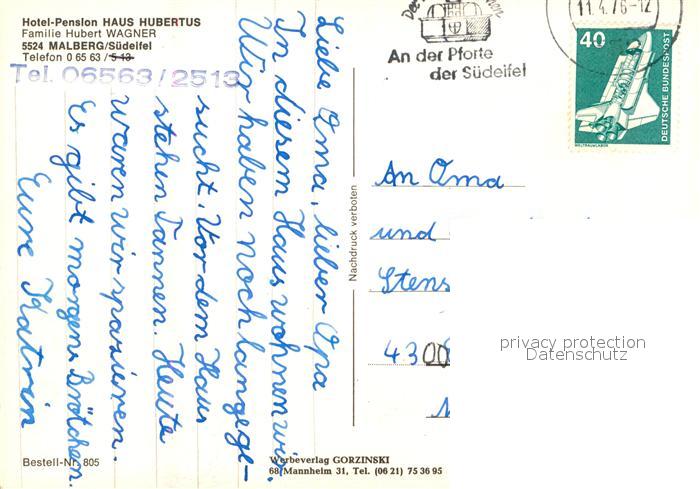 Hotel-Pension HAUS HUBERTUS
Familie Hubert WAGNER
5524 MALBERG/Südeifel
Telefon 0 65 63 / 5 13
Tel. 06563/2513
Liebe Oma, lieber Opa
In diesem Haus wohnen wir.
Wir haben noch lange ge-
sucht. Vor dem Haus
stehen Tannen. Heute
waren wir spazieren.
Es gibt morgens Brötchen.
Eure Katrin
Bestell-Nr. 805
Nachdruck verboten
Werbeverlag GORZINSKI
68 Mannheim 31, Tel. (06 21) 75 36 95
An der Pforte
der Südeifel
11.4.76-12
40
DEUTSCHE BUNDESPOST
WELTRAUMLABOR
An Oma
und
Stens
4300
privacy protection
Datenschutz